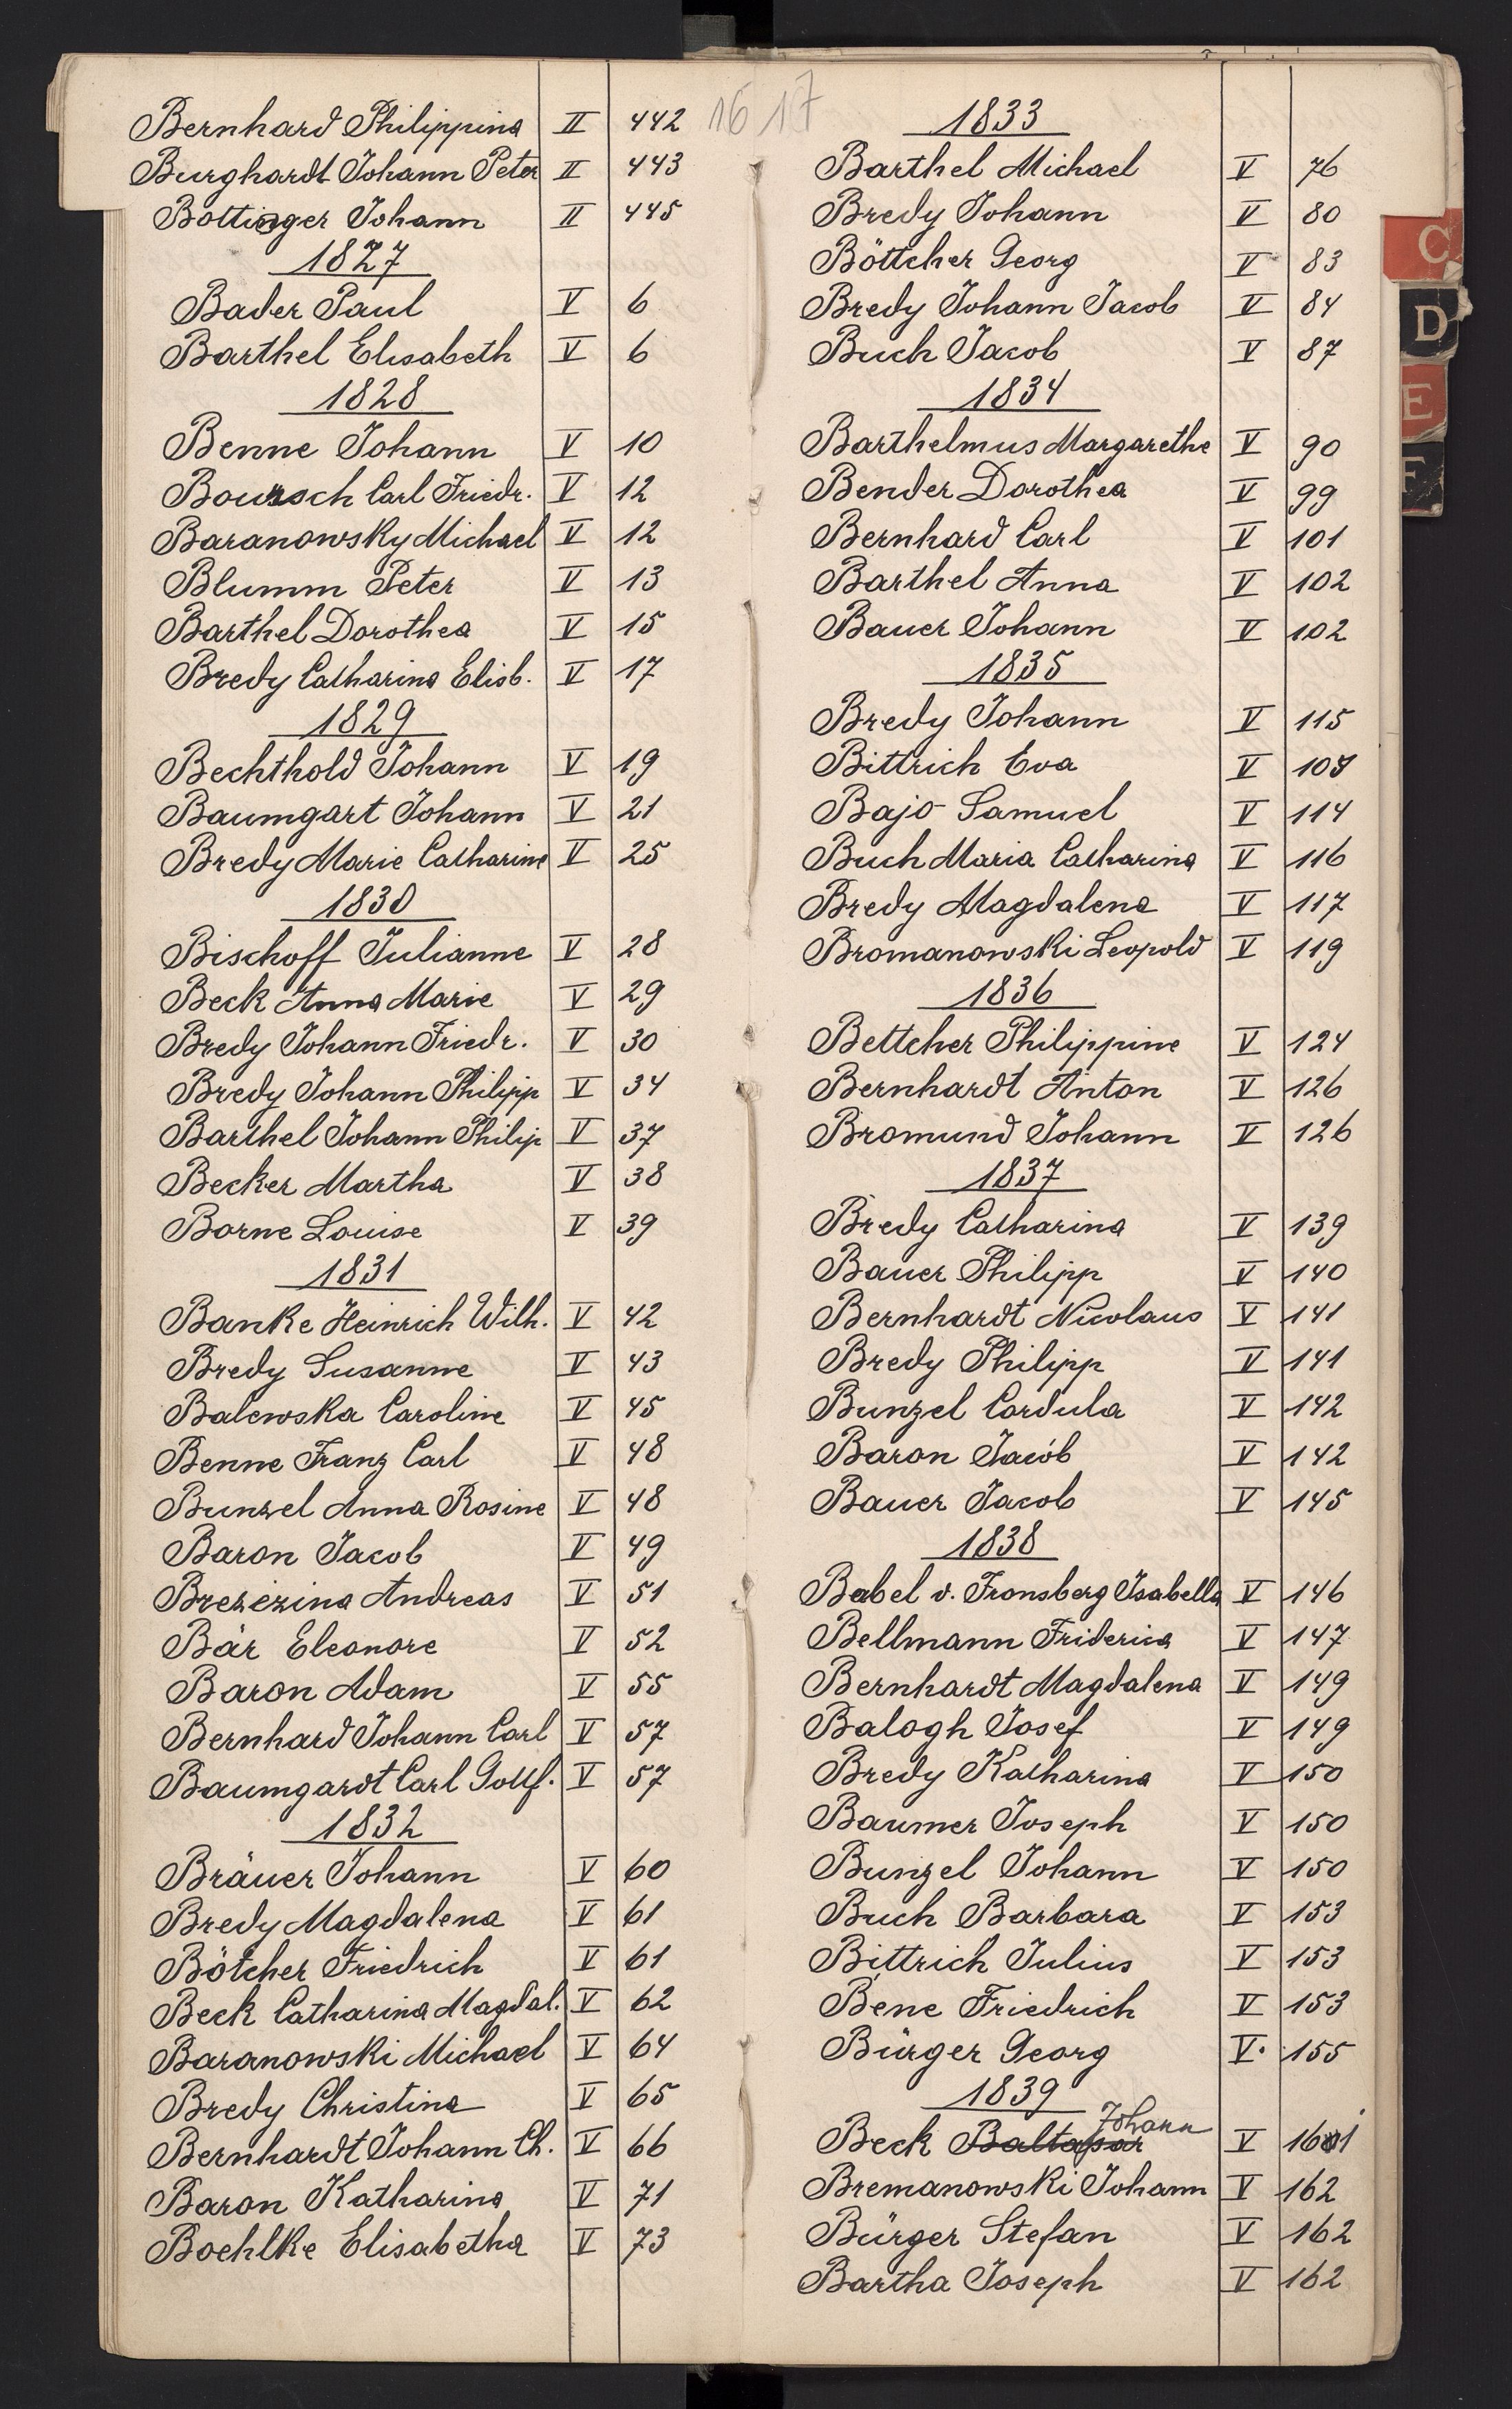 Bernhard Philippina II 442
Burghardt Johann Peter II 443
Bottinger Johann II 445
1827
Bader Paul V 6
Barthel Elisabeth V 6
1828
Benne Johann V 10
Boursch Carl Friedr. V 12
Baranowsky Michael V 12
Blumm Peter V 13
Barthel Dorothea V 15
Bredy Catharina Elisb. V 17
1829
Bechthold Johann V 19
Baumgart Johann V 21
Bredy Marie Catharine V 25
1830
Bischoff Julianne V 28
Beck Anna Marie V 29
Bredy Johann Friedr. V 30
Bredy Johann Philipp V 34
Barthel Johann Philip V 37
Becker Martha V 38
Borne Louise V 39
1831
Banke Heinrich Wilh. V 42
Bredy Susanne V 43
Balewska Caroline V 45
Benne Franz Carl V 48
Bunzel Anna Rosine V 48
Baron Jacob V 49
Brezezina Andreas V 51
Bär Eleonore V 52
Baron Adam V 55
Bernhard Johann Carl V 57
Baumgardt Carl Gottf. V 57
1832
Bräuer Johann V 60
Bredy Magdalena V 61
Bötcher Friedrich V 61
Beck Catharina Magdal. V 62
Baranowski Michael V 64
Bredy Christina V 65
Bernhardt Johann Ch. V 66
Baron Katharina V 71
Boehlke Elisabetha V 73
16 17
1833
Barthel Michael V 76
Bredy Johann V 80
Böttcher Georg V 83
Bredy Johann Jacob V 84
Buch Jacob V 87
1834
Barthelmus Margarethe V 90
Bender Dorothea V 99
Bernhard Carl V 101
Barthel Anna V 102
Bauer Johann V 102
1835
Bredy Johann V 115
Bittrich Eva V
Bajo Samuel V 114
Buch Maria Catharina V 116
Bredy Magdalena V 117
Bromanowski Leopold V 119
1836
Bettcher Philippine V 124
Bernhardt Anton V 126
Bromund Johann V 126
1837
Bredy Catharina V 139
Bauer Philipp V 140
Bernhardt Nicolaus V 141
Bredy Philipp V 141
Bunzel Cordula V 142
Baron Jacob V 142
Bauer Jacob V 145
1838
Babel v. Fronsberg Isabella V 146
Bellmann Friderica V 147
Bernhardt Magdalena V 149
Balogh Josef V 149
Bredy Katharina V 150
Baumer Joseph V 150
Bunzel Johann V 150
Buch Barbara V 153
Bittrich Julius V 153
Bene Friedrich V 153
Bürger Georg V. 155
1839
Johann
Beck Baltasar V
Bremanowski Johann V 162
Bürger Stefan V 162
Bartha Joseph V 162
C
D
E
F